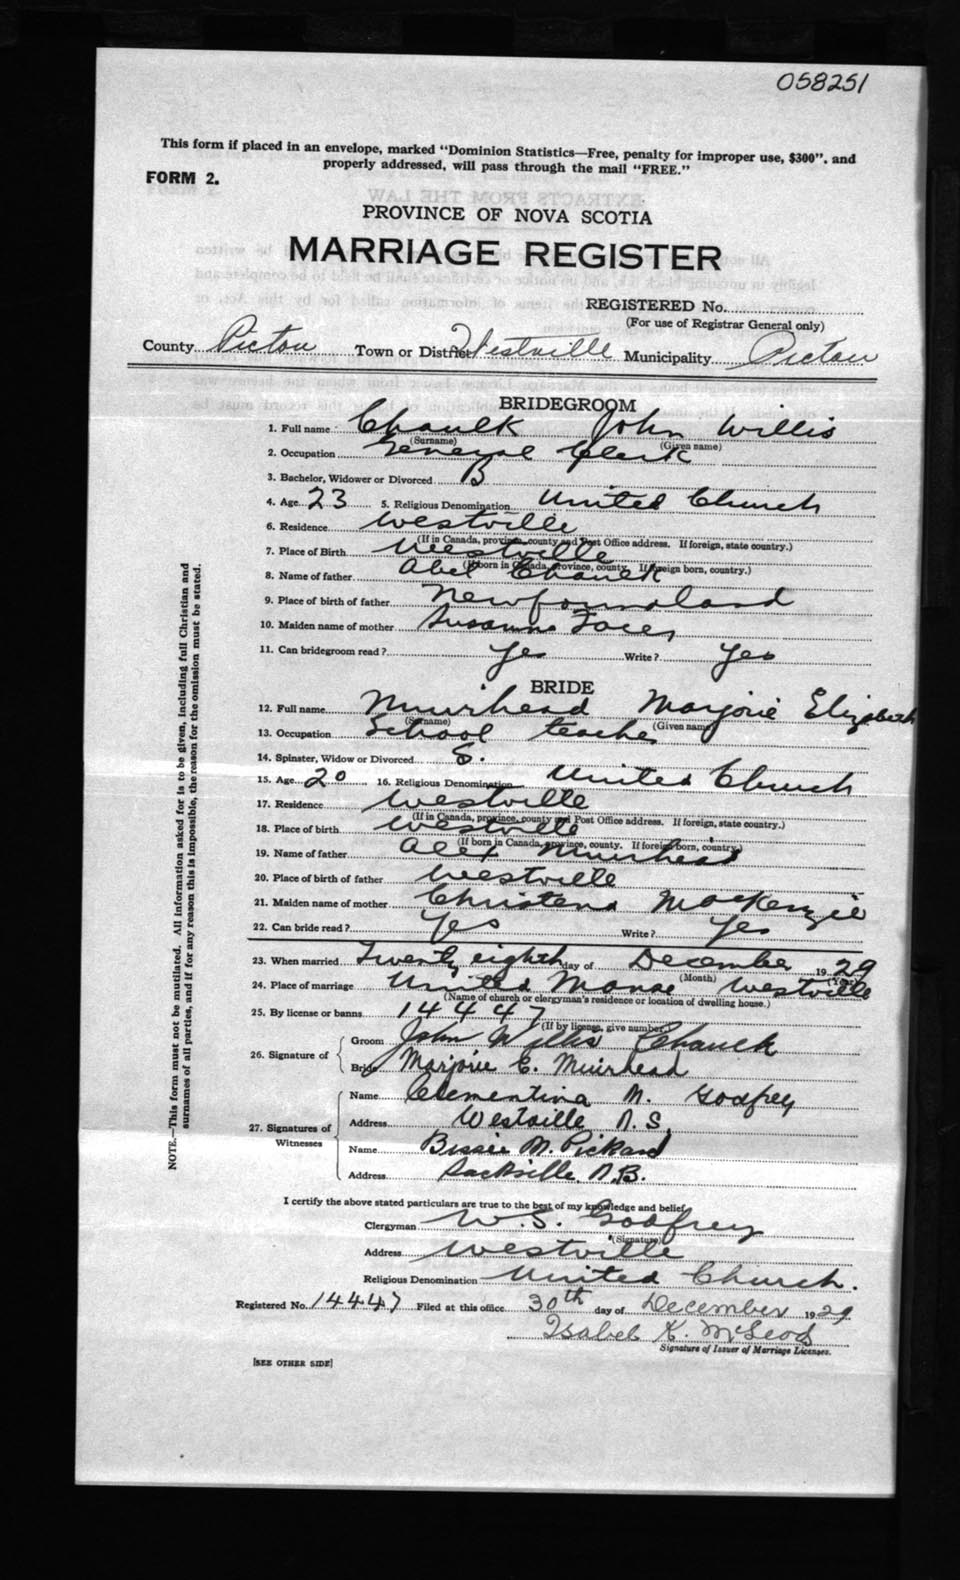 058251
This form if placed in an envelope, marked "Dominion Statistics—Free, penalty for improper use, $300". and
properly addressed, will pass through the mail "FREE."
FORM 2.
PROVINCE OF NOVA SCOTIA
MARRIAGE REGISTER
REGISTERED No.
(For use of Registrar General only)
County Pictou Town or District Westville Municipality Pictou
BRIDEGROOM
1. Full name Chaulk John Willis
(Surname) (Given name)
2. Occupation General Clerk
3. Bachelor, Widower or Divorced B
4. Age 23 5. Religious Denomination United Church
6. Residence Westville
(If in Canada, province, county and Post Office address. If foreign, state country.)
7. Place of Birth Westville
(If born in Canada, province, county. If foreign born, country.)
8. Name of father Abel Chaulk
9. Place of birth of father Newfoundland
10. Maiden name of mother Susanna
11. Can bridegroom read? Yes Write? Yes
BRIDE
12. Full name Muirhead Marjorie Elizabeth
(Surname) (Given name)
13. Occupation School teacher
14. Spinster, Widow or Divorced S.
15. Age 20 16. Religious Denomination United Church
17. Residence Westville
(If in Canada, province, county and Post Office address. If foreign, state country.)
18. Place of birth Westville
(If born in Canada, province, county. If foreign born, country.)
19. Name of father Alex Muirhead
20. Place of birth of father Westville
21. Maiden name of mother Christena MacKenzie
22. Can bride read? Yes Write? Yes
23. When married Twenty eighth day of December 1929
(Month) (Year)
24. Place of marriage United Manse Westville
(Name of church or clergyman's residence or location of dwelling house.)
25. By license or banns 14447
(If by license, give number.)
26. Signature of Groom John Willis Chaulk
Bride Marjorie E. Muirhead
27. Signatures of Witnesses Name Clementina M. Godfrey
Address Westville N.S.
Name Bessie M. Pickard
Address Sackville, N.B.
I certify the above stated particulars are true to the best of my knowledge and belief.
Clergyman W. S. Godfrey
(Signature)
Address Westville
Religious Denomination United Church.
Registered No. 14447 Filed at this office 30th day of December 1929
Isabel K. McLeod
Signature of Issuer of Marriage Licenses.
[SEE OTHER SIDE]
NOTE.—This form must not be mutilated. All information asked for is to be given, including full Christian and
surnames of all parties, and if for any reason this is impossible, the reason for the omission must be stated.